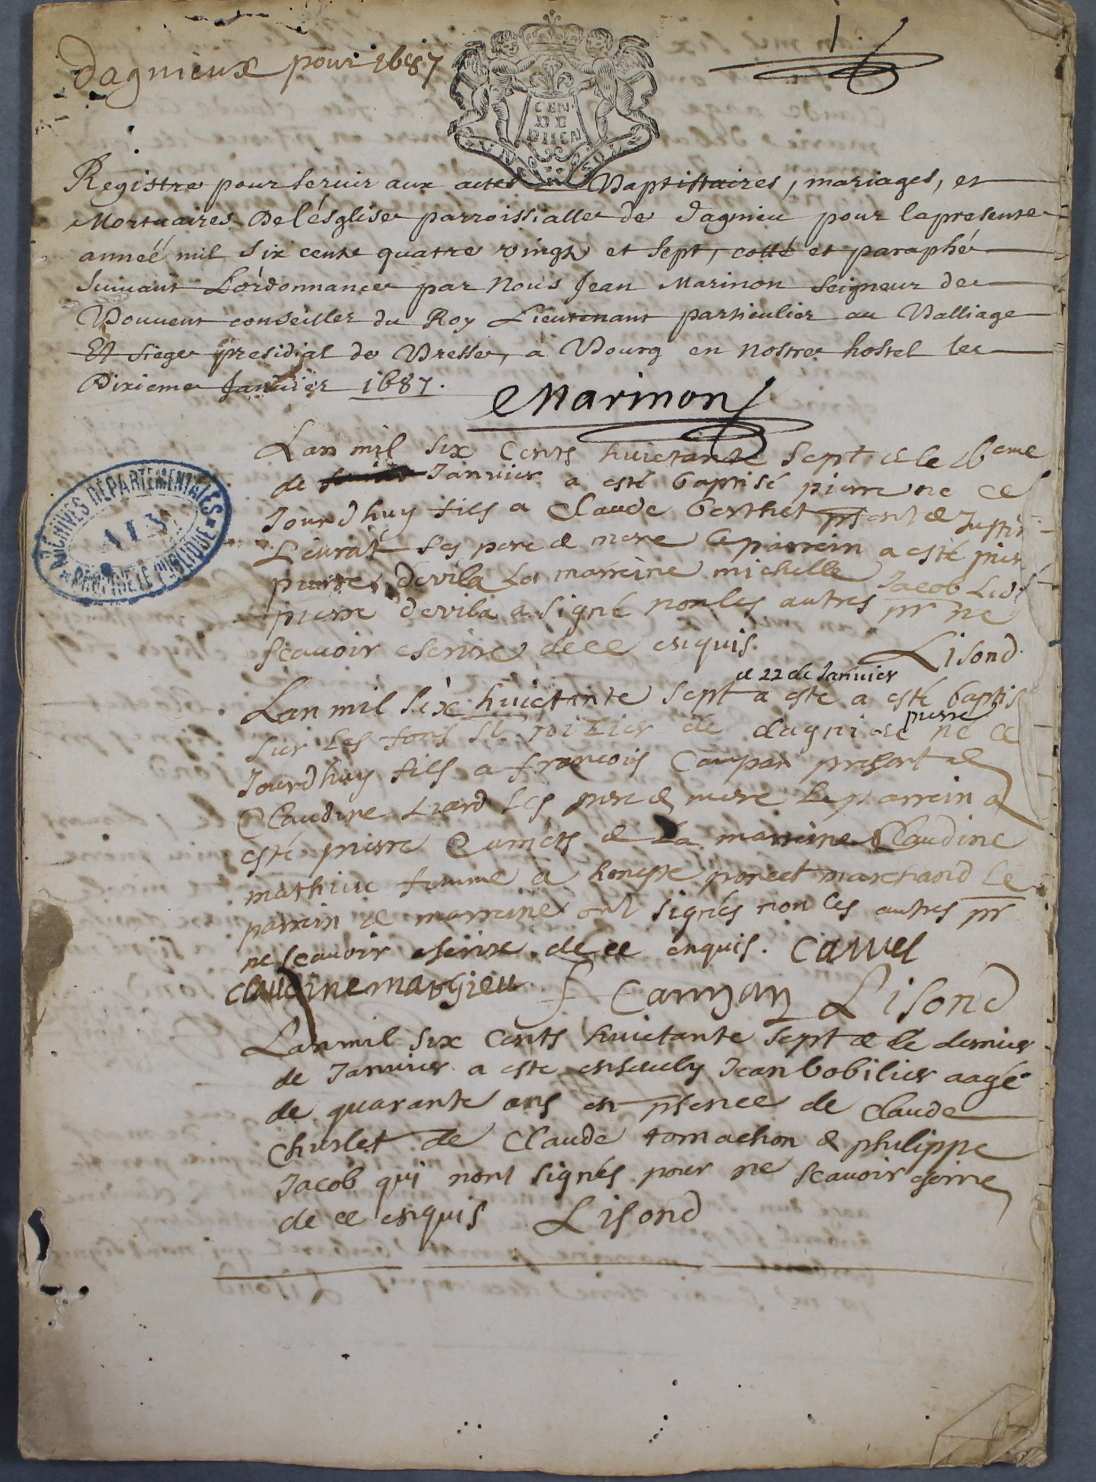 dagnieux pour 1687
1
GEN DE DIJON
UN SOL
Registre pour servir aux actes Baptistaires, mariages, et
Mortuaires de l'esglise parroissialle de dagnieu pour la presente
année mil six cents quatre vingt et sept, cotté et paraphé
suivant L'ordonnance par Nous Jean Marinon seigneur de
Vouvent conseiller du Roy Lieutenant particulier au Balliage
Et siege presidial de Bresse, a Bourg en nostre hostel le
Dixieme Janvier 1687.
Marinon
ARCHIVES DEPARTEMENTALES
AIN
PROPRIETE PUBLIQUE
Lan mil six Cents huictante sept & le 16eme
de Janvier a esté baptisé pierre ne ce
Jourdhuy fils a Claude berthet psent &
Lieurat ses pere & mere le parrein a esté
pierre devila La marreine michelle Jacob
pierre devila a signé non les autres pr ne
scavoir escrire de ce enquis. Lisond
& 22 de Janvier
Lan mil six huictante sept a este a esté baptis
sur Les fons de dagnieu pierre ne ce
Jourdhuy fils a francois Campan present &
Claudine Liard ses pere & mere Le parrein a
esté pierre & La marreine Claudine
mathieu femme a honeste poncet marchand Le
parrein & marreine ont signés non les autres pr
ne scavoir escrire de ce enquis. Carmel
claudine mathieu f Campan Lisond
Lan mil six Cents huictante sept & le dernier
de Janvier a este ensevely Jean bobilier aagé
de quarante ans en psence de Claude
Churlet de Claude tomachon & philippe
Jacob qui nont signés pour ne scavoir escrire
de ce enquis Lisond